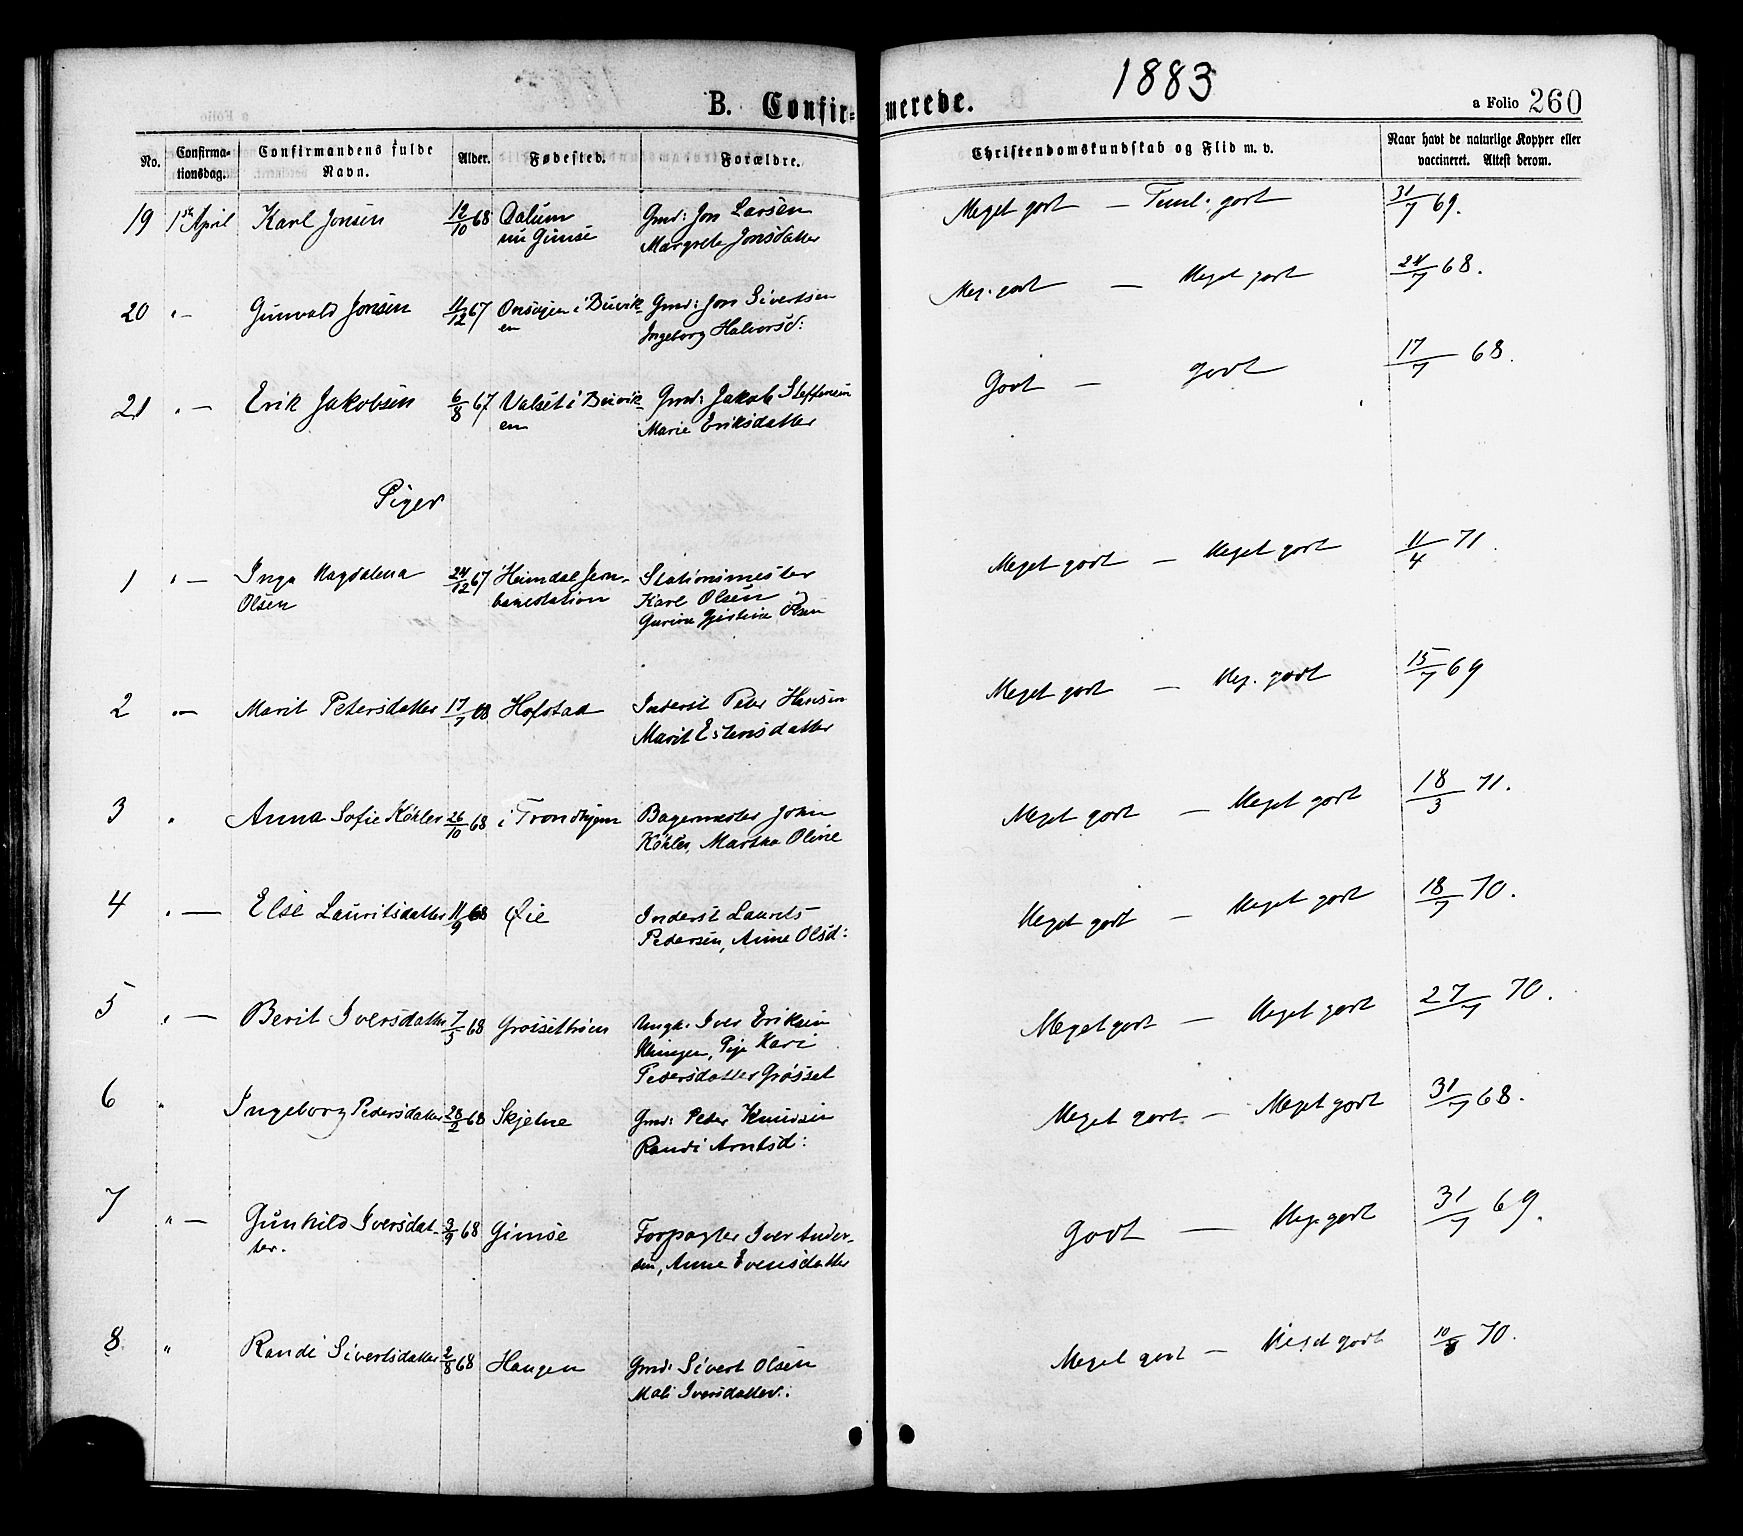 1883
B. Confirmerede.
a Folio 260
No. Confirmationsdag. Confirmandens fulde Navn. Alder. Fødested. Forældre. Christendomskundskab og Flid m. v. Naar havt de naturlige Kopper eller vaccineret. Attest derom.
19 1ste April Karl Jonsen 12/10 68 Dalum Gmd: Jon Larsen Meget godt — Teml. godt 31/7 69.
nu Gimse Margrete Jonsdatter
20 " — Gunvald Jonsen 11/12 67 i Buvik- Gmd: Jon Sivertsen Meg. godt — Meget godt 24/7 68.
en Ingeborg Halvorsd:
21 " — Erik Jakobsen 6/8 67 Valset i Buvik- Gmd: Jakob Steffensen Godt — godt 17/7 68.
en Marie Eriksdatter
Piger
1 " — Inga Magdalena 24/12 67 Heimdal Jern- Stationsmester Meget godt — Meget godt 11/4 71.
Olsen banestation Karl Olsen og
Gurine Olsen
2 " — Marit Petersdatter 17/7 68 Hofstad Inderst Peter Hansen Meget godt — Meg. godt 15/7 69
Marit Estensdatter
3 " Anna Sofie Köhler 26/10 68 i Trondhjem Bagermester John Meget godt — Meget godt 18/3 71.
Köhler, Martha Oline
4 " — Else Lauritsdatter 11/9 68 Øie Inderst Laurits Meget godt — Meget godt 18/7 70.
Pedersen, Anne Olsd:
5 " — Berit Iversdatter 7/5 68 Grøssettrøen Ungk. Iver Eriksen Meget godt — Meget godt 27/7 70.
Klingen, Pige Kari
Pedersdatter Grøsset
6 " Ingeborg Pedersdatter 28/2 68 Skjetne Gmd: Peder Knudsen Meget godt. — Meget godt 31/7 68.
Randi Arntsd:
7 " — Gunhild Iversdat- 3/9 68 Gimse Forpagter Iver Ander- Godt — Meg. godt 31/7 69.
ter. sen, Anne Evensdatter
8 " Randi Sivertsdatter 2/8 68 Haugen Gmd: Sivert Olsen Meget godt — Meget godt 10/8 70.
Mali Iversdatter.